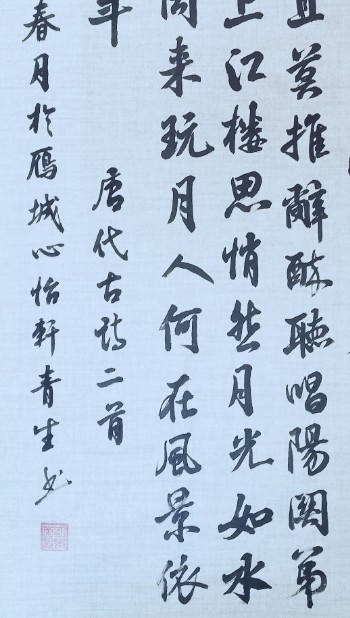 且莫推辭醉聽唱陽関第
上江樓思悄然月光如水
同来玩月人何在風景依
年
唐代古詩二首
春月於鴈城心怡軒青生书